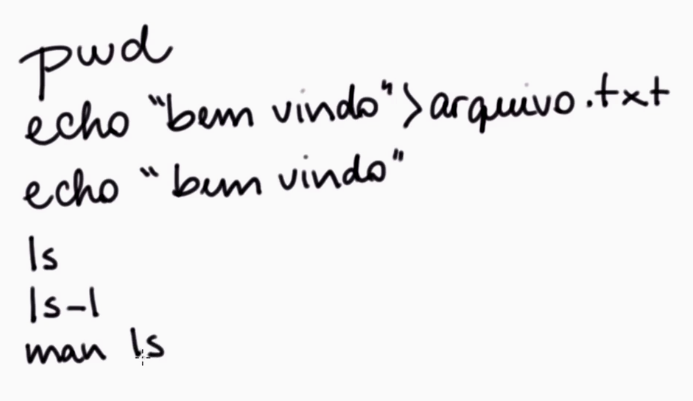 pwd
echo "bem vindo">arquivo.txt
echo "bem vindo"
ls
ls-l
man ls